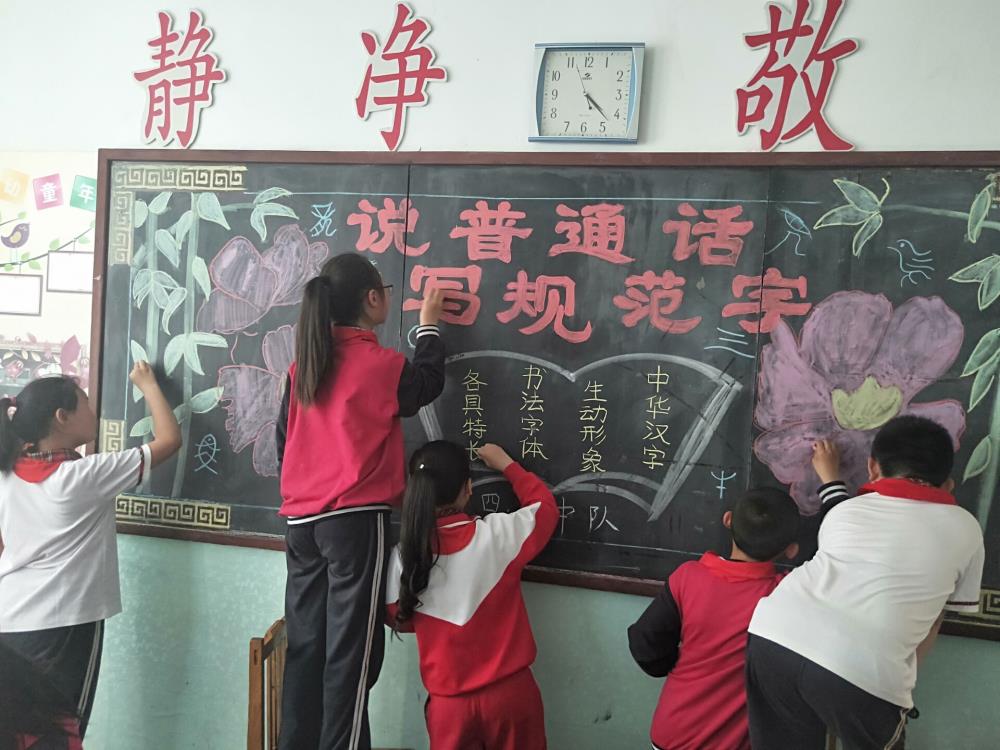 静 净 敬
11 12 1
10 2
9 3
8 4
7 6 5
童 年
说普通话
写规范字
中华汉字
生动形象
书法字体
各具特长
四 中队